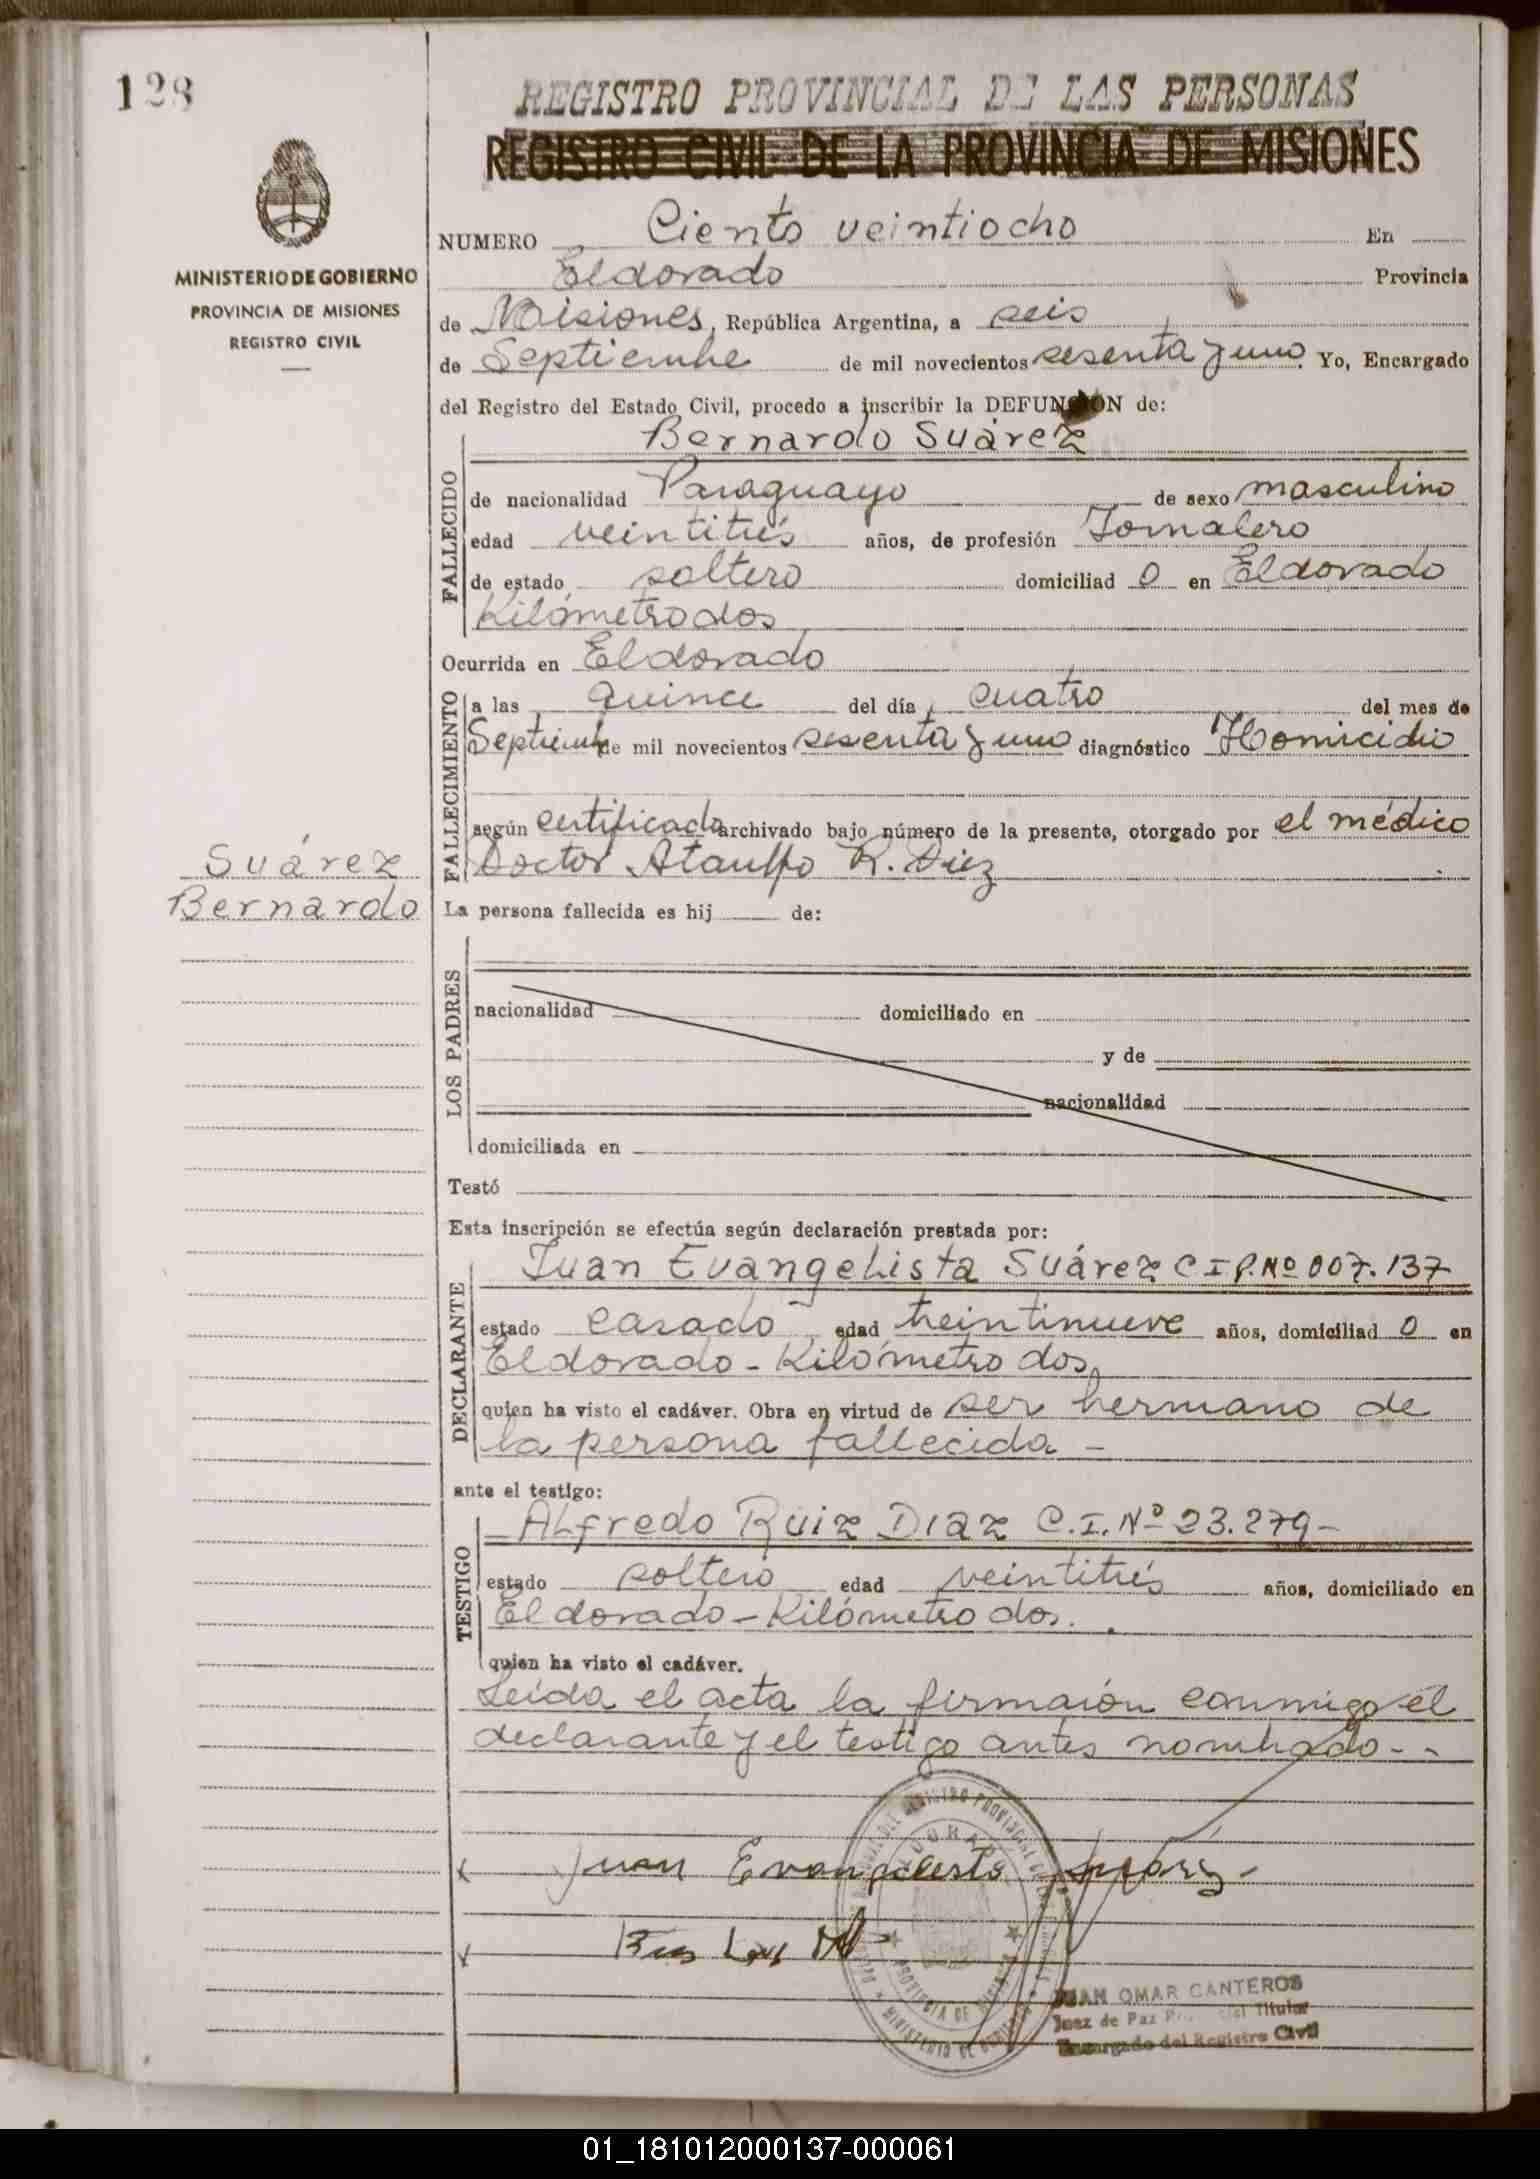 128
REGISTRO PROVINCIAL DE LAS PERSONAS
REGISTRO CIVIL DE LA PROVINCIA DE MISIONES
MINISTERIO DE GOBIERNO
PROVINCIA DE MISIONES
REGISTRO CIVIL
NUMERO Ciento veintiocho En
Eldorado Provincia
de Misiones, República Argentina, a seis
de Septiembre de mil novecientos sesenta y uno. Yo, Encargado
del Registro del Estado Civil, procedo a inscribir la DEFUNCION de:
Bernardo Suárez
FALLECIDO
de nacionalidad Paraguayo de sexo masculino
edad veintitrés años, de profesión Jornalero
de estado soltero domiciliad o en Eldorado
Kilómetro dos
Ocurrida en Eldorado
FALLECIMIENTO
a las quince del día cuatro del mes de
Septiembre de mil novecientos sesenta y uno diagnóstico Homicidio
según certificado archivado bajo número de la presente, otorgado por el médico
Doctor Ataulfo R. Diez
Suárez
Bernardo
La persona fallecida es hij de:
LOS PADRES
nacionalidad domiciliado en
y de
nacionalidad
domiciliada en
Testó
Esta inscripción se efectúa según declaración prestada por:
DECLARANTE
Juan Evangelista Suárez C I P. Nº 007.137
estado casado edad treintinueve años, domiciliad o en
Eldorado - Kilómetro dos,
quien ha visto el cadáver. Obra en virtud de ser hermano de
la persona fallecida -
ante el testigo:
TESTIGO
Alfredo Ruiz Diaz C.I. Nº 23.279-
estado soltero edad veintitrés años, domiciliado en
Eldorado - Kilómetro dos.
quien ha visto el cadáver.
Leída el acta la firmaron conmigo el
declarante y el testigo antes nombrado--
Juan Evangelista Suárez-
JUAN OMAR CANTEROS
Juez de Paz Titular
Encargado del Registro Civil
01_181012000137-000061